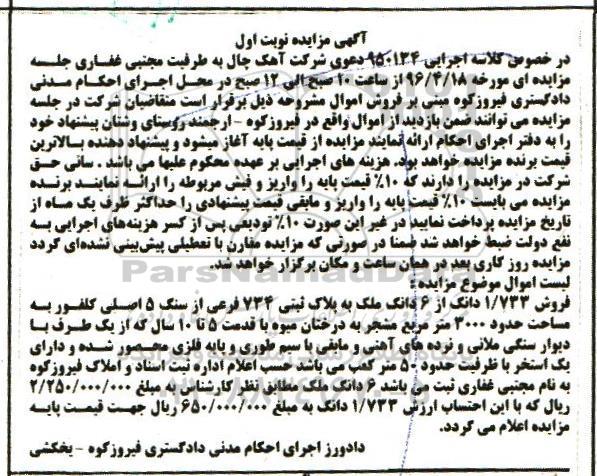 آگهی مزایده نوبت اول
در خصوص کلاسه اجرایی ۹۵۰۱۳۴ دعوی شرکت آهک چال به طرفیت مجتبی غفاری جلسه
مزایده ای مورخه ۹۶/۴/۱۸ از ساعت ۱۰ صبح الی ۱۲ صبح در محل اجرای احکام مدنی
دادگستری فیروزکوه مبنی بر فروش اموال مشروحه ذیل برقرار است متقاضیان شرکت در جلسه
مزایده می توانند ضمن بازدید از اموال واقع در فیروزکوه – ارجمند روستای وشتان پیشنهاد خود
را به دفتر اجرای احکام ارائه نمایند مزایده از قیمت پایه آغاز میشود و پیشنهاد دهنده بالاترین
قیمت برنده مزایده خواهد بود. هزینه های اجرایی بر عهده محکوم علیها می باشد . سانی حق
شرکت در مزایده را دارند که ۱۰٪ قیمت پایه را واریز و فیش مربوطه را ارائه نمایند برنده
مزایده می بایست ۱۰٪ قیمت پایه را واریز و مابقی قیمت پیشنهادی را حداکثر ظرف یک ماه از
تاریخ مزایده پرداخت نمایید در غیر این صورت ۱۰٪ تودیعی پس از کسر هزینه‌های اجرایی به
نفع دولت ضبط خواهد شد ضمنا در صورتی که مزایده مقارن با تعطیلی پیش‌بینی نشده‌ای گردد
مزایده روز کاری بعد در همان ساعت و مکان برگزار خواهد شد.
لیست اموال موضوع مزایده :
فروش ۱/۷۳۳ دانگ از ۶ دانگ ملک به پلاک ثبتی ۷۳۴ فرعی از سنگ ۵ اصلی کلفور به
مساحت حدود ۳۰۰۰ متر مربع مشجر به درختان میوه با قدمت ۵ تا ۱۰ سال که از یک طرف با
دیوار سنگی ملاتی و نرده های آهنی و مابقی با سیم طوری و پایه فلزی محصور شده و دارای
یک استخر با ظرفیت حدود ۵۰ متر کمب می باشد حسب اعلام اداره ثبت اسناد و املاک فیروزکوه
به نام مجتبی غفاری ثبت می باشد ۶ دانگ ملک مطابق نظر کارشناس به مبلغ ۲/۲۵۰/۰۰۰/۰۰۰
ریال که با این احتساب ارزش ۱/۷۳۳ دانگ به مبلغ ۶۵۰/۰۰۰/۰۰۰ ریال جهت قیمت پایه
مزایده اعلام می گردد.
دادورز اجرای احکام مدنی دادگستری فیروزکوه – یخکشی
ParsNamadData